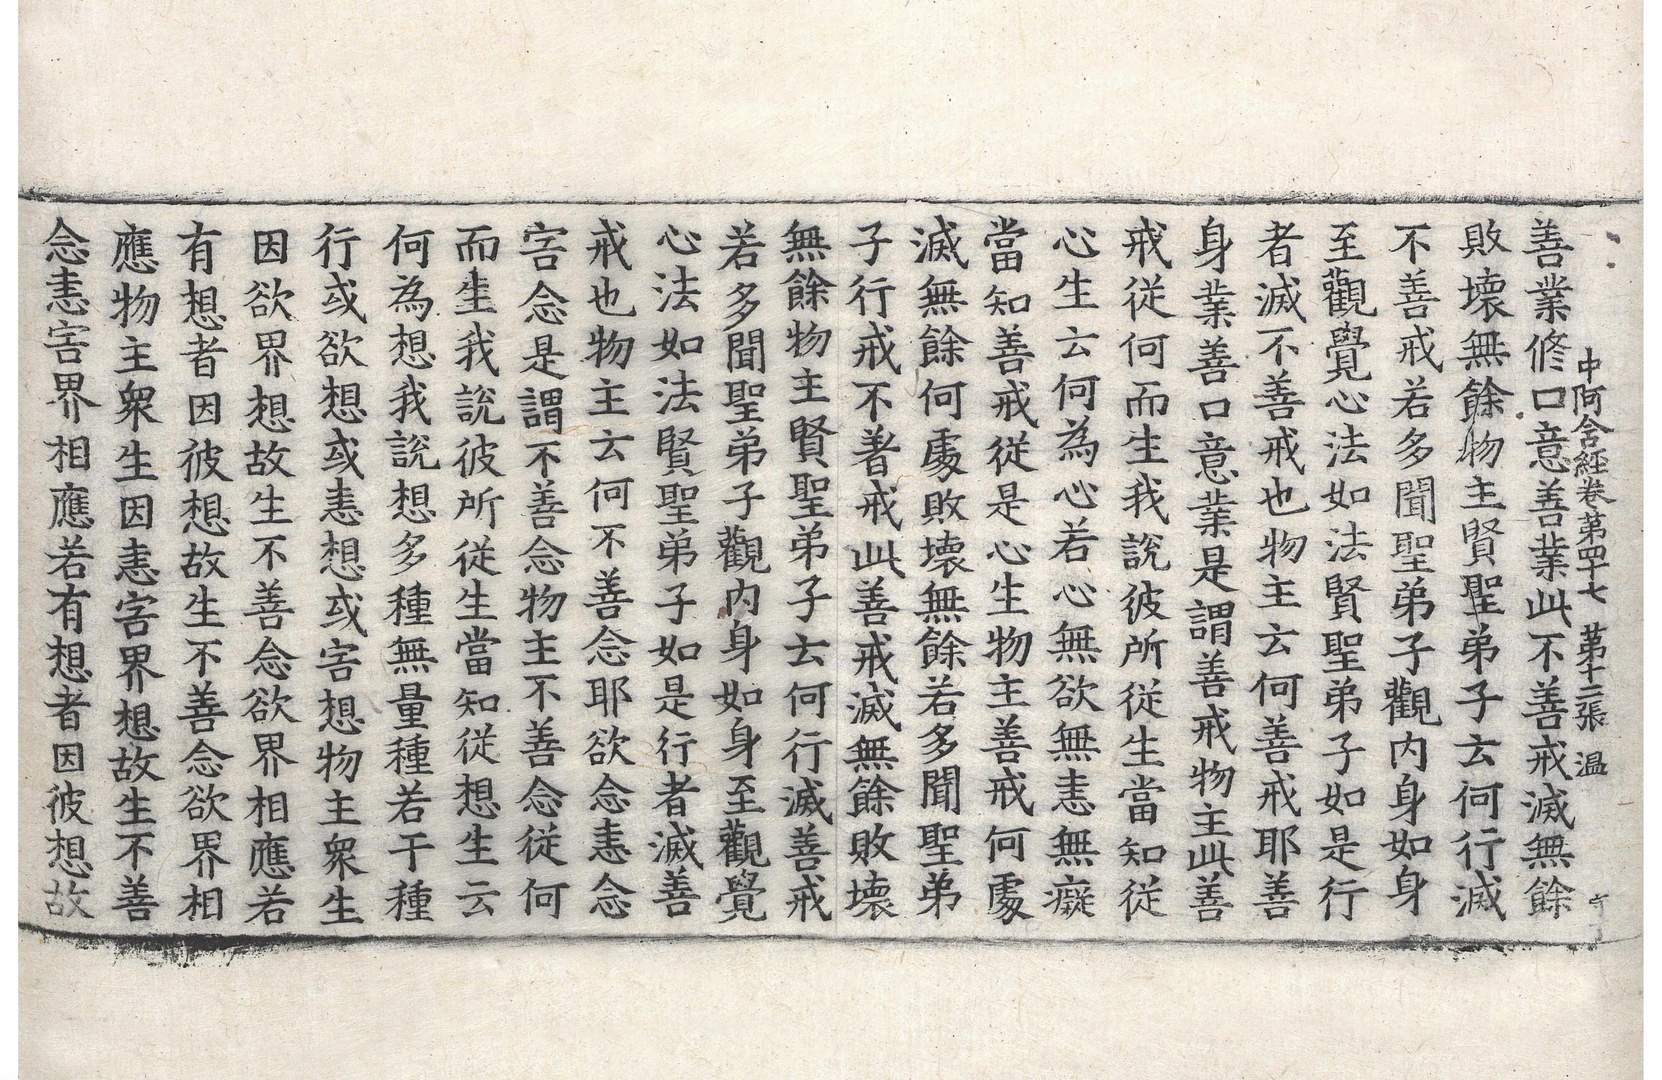 中阿含經卷第四十七 第十二張 温
善業修口意善業此不善戒滅無餘
敗壞無餘物主賢聖弟子云何行滅
不善戒若多聞聖弟子觀內身如身
至觀覺心法如法賢聖弟子如是行
者滅不善戒也物主云何善戒耶善
身業善口意業是謂善戒物主此善
戒從何而生我說彼所從生當知從
心生云何為心若心無欲無恚無癡
當知善戒從是心生物主善戒何處
滅無餘何處敗壞無餘若多聞聖弟
子行戒不著戒此善戒滅無餘敗壞
無餘物主賢聖弟子云何行滅善戒
若多聞聖弟子觀內身如身至觀覺
心法如法賢聖弟子如是行者滅善
戒也物主云何不善念耶欲念恚念
害念是謂不善念物主不善念從何
而生我說彼所從生當知從想生云
何為想我說想多種無量種若干種
行或欲想或恚想或害想物主衆生
因欲界想故生不善念欲界相應若
有想者因彼想故生不善念欲界相
應物主衆生因恚害界想故生不善
念恚害界相應若有想者因彼想故